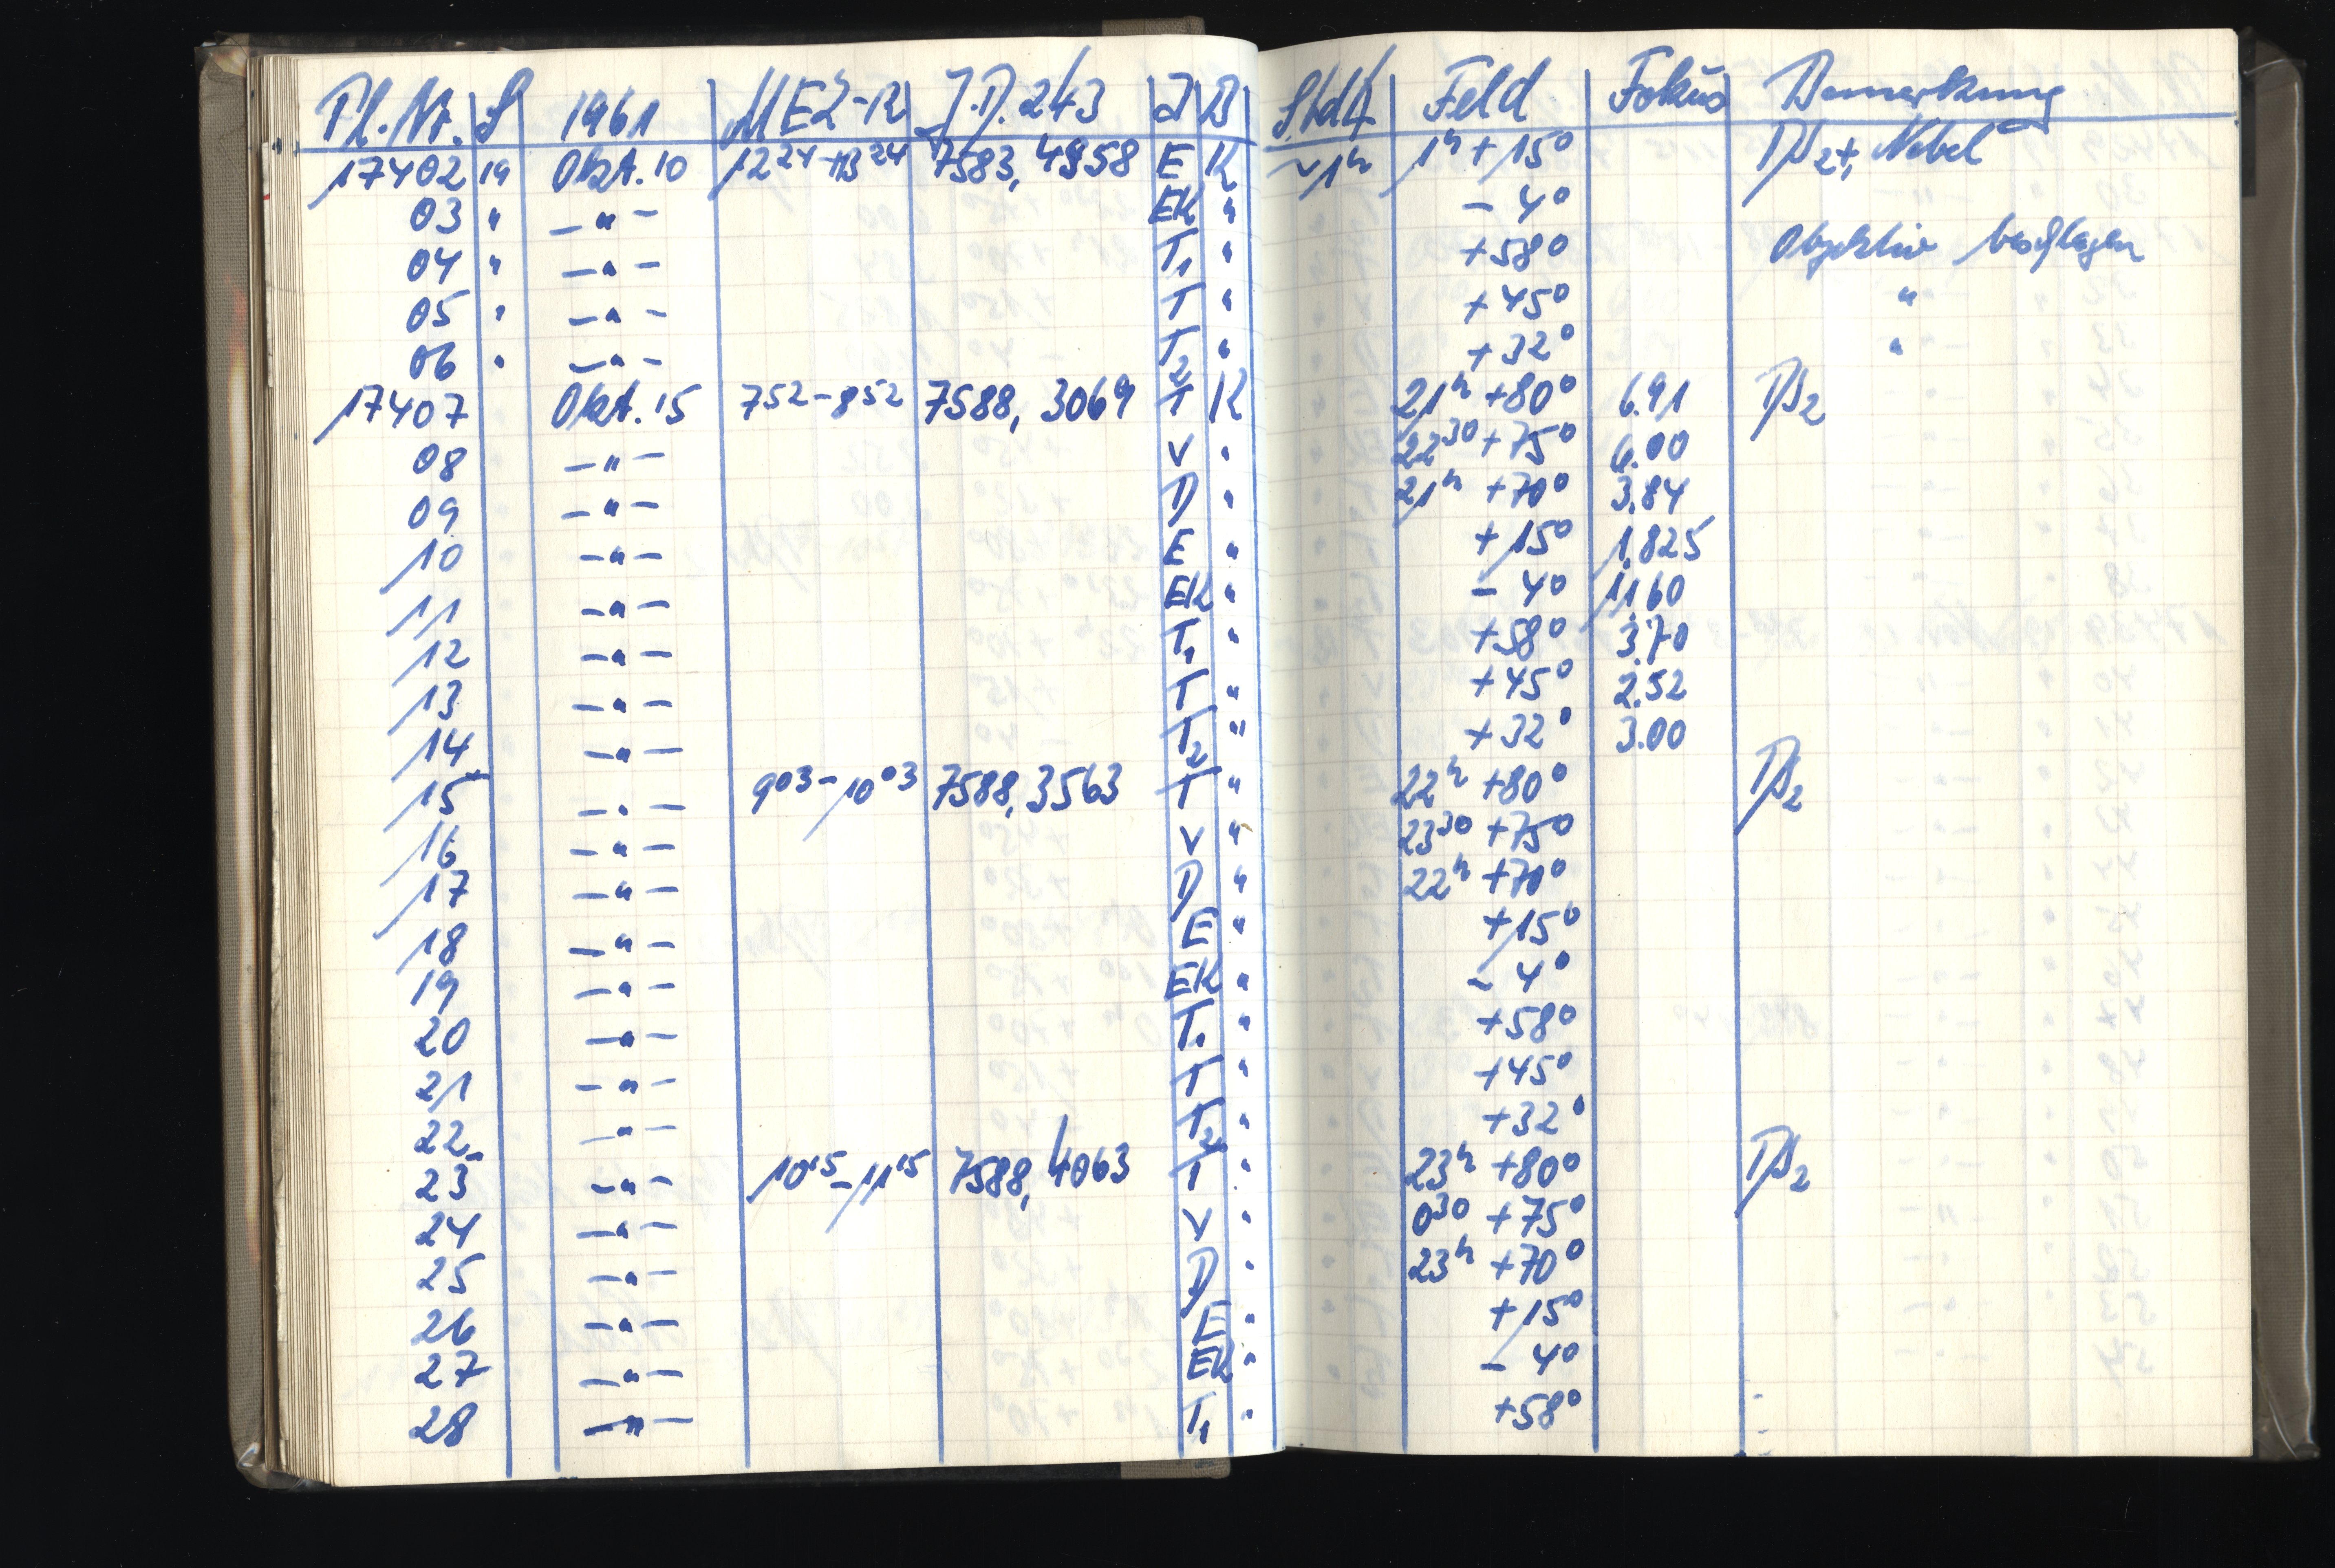 Pl.Nr. S 1961 MEZ-R J.D. 243 J B Stdt Feld Fokus Bemerkung
17402 19 Okt. 10 12 24 - 13 24 7583, 4958 E K ~1h 1h +15° Ds2+, Nebel
03 " -"- EK " - 4°
04 " -"- T1 " +58° Objektiv beschlagen
05 " -"- T " +45° "
06 " -"- T2 " +32° "
17407 Okt. 15 7 52 - 8 52 7588, 3069 T K 21h +80° 6.91 Ds2
08 -"- V " 22 30 +75° 6.00
09 -"- D " 21h +70° 3.84
10 -"- E " +15° 1.825
11 -"- EK " - 4° 11.60
12 -"- T1 " +58° 3.70
13 -"- T " +45° 2.52
14 -"- T2 " +32° 3.00
15 -"- 9 03 - 10 03 7588, 3563 T " 22h +80° Ds2
16 -"- V " 23 30 +75°
17 -"- D " 22h +70°
18 -"- E " +15°
19 -"- EK " - 4°
20 -"- T1 " +58°
21 -"- T " +45°
22 -"- T2 " +32°
23 -"- 10 15 - 11 15 7588, 4063 T " 23h +80° Ds2
24 -"- V " 0 30 +75°
25 -"- D " 23h +70°
26 -"- E " +15°
27 -"- EK " - 4°
28 -"- T1 " +58°